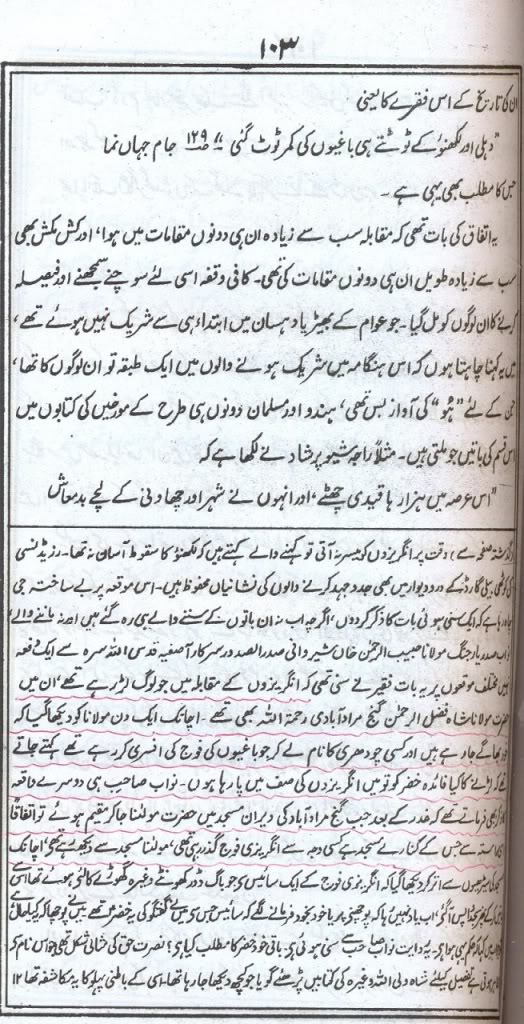 ۱۰۳
ان کی تاریخ کے اس فقرے کا یعنی
"دہلی اور لکھنؤ کے ٹوٹتے ہی باغیوں کی کمر ٹوٹ گئی" ص۱۲۹ جام جہاں نما
جس کا مطلب بھی یہی ہے۔
یہ اتفاق کی بات تھی کہ مقابلہ سب سے زیادہ ان ہی دونوں مقامات میں ہوا، اور کش مکش بھی
سب سے زیادہ طویل ان ہی دونوں مقامات کی تھی۔ کافی وقفہ اسی لئے سوچنے سمجھنے اور فیصلہ
کرنے کا ان لوگوں کو مل گیا۔ جو عوام کے بھیڑیا دہسان میں ابتداء ہی سے شریک نہیں ہوئے تھے،
میں یہ کہنا چاہتا ہوں کہ اس ہنگامہ میں شریک ہونے والوں میں ایک طبقہ تو ان لوگوں کا تھا،
جن کے لئے "ہُو" کی آواز بس تھی، ہندو اور مسلمان دونوں ہی طرح کے مورخین کی کتابوں میں
اس قسم کی باتیں جو ملتی ہیں۔ مثلاً راجہ شیو پرشاد نے لکھا ہے کہ
"اس عرصہ میں ہزارہا قیدی چھٹے، اور انہوں نے شہر اور چھاونی کے لچے بدمعاش
(گذشتہ صفحہ سے) وقت پر انگریزوں کو میسر نہ آتی تو کہنے والے کہتے ہیں کہ لکھنؤ کا سقوط آسان نہ تھا۔ رزیڈنسی
کی کوٹھی بیلی گارڈ کے در و دیوار میں بھی جدوجہد کرنے والوں کی نشانیاں محفوظ ہیں۔ اس موقعہ پر بے ساختہ جی
چاہ رہا ہے کہ ایک سنی ہوئی بات کا ذکر کردوں، اگرچہ اب نہ ان باتوں کے سننے والے ہی رہ گئے ہیں اور نہ ماننے والے،
نواب صدر یار جنگ مولانا حبیب الرحمٰن خاں شیروانی صدر الصدور سرکار آصفیہ قدس اللہ سرہ سے ایک دفعہ
نہیں مختلف موقعوں پر یہ بات فقیر نے سنی تھی کہ انگریزوں کے مقابلہ میں جو لوگ لڑ رہے تھے، ان میں
حضرت مولانا شاہ فضل الرحمٰن گنج مراد آبادی رحمۃ اللہ بھی تھے۔ اچانک ایک دن مولانا کو دیکھا گیا کہ
خود بھاگے جا رہے ہیں اور کسی چودھری کا نام لے کر جو باغیوں کی فوج کی افسری کر رہے تھے کہتے جاتے
تھے کہ لڑنے کا کیا فائدہ خضر کو تو میں انگریزوں کی صف میں پا رہا ہوں۔ نواب صاحب ہی دوسرے واقعہ
کا ذکر بھی فرماتے تھے کہ غدر کے بعد جب گنج مراد آباد کی ویران مسجد میں حضرت مولٰنا جا کر مقیم ہوئے تو اتفاقاً
اسی راستہ سے جس کے کنارے مسجد ہے کسی وجہ سے انگریزی فوج گذر رہی تھی، مولٰنا مسجد سے دیکھ رہے تھے، اچانک
مسجد کی سیڑھیوں سے اتر کر دیکھا گیا کہ انگریزی فوج کے ایک سائیس سے جو باگ ڈور کھونٹے وغیرہ گھوڑے کا لئے ہوئے تھا اس سے
باتیں کرکے پھر مسجد واپس آگئے اب یاد نہیں رہا کہ پوچھنے پر یا خود بخود فرمانے لگے کہ سائیس جس سے میں نے گفتگو کی یہ خضر تھے میں نے پوچھا کہ یہ کیا حال
ہے تو جواب میں کہا کہ حکم یہی ہوا ہے یہ روایت نواب صاحب سے سنی ہوئی ہے باقی خود خضر کا مطلب کیا ہے؟ نصرت حق کی مثالی شکل تھی جو اس نام سے
ظاہر ہوتی ہے تفصیل کیلئے شاہ ولی اللہ وغیرہ کی کتابیں پڑھئے گویا جو کچھ دیکھا جا رہا تھا۔ اسی کے باطنی پہلو کا یہ مکاشفہ تھا ۱۲